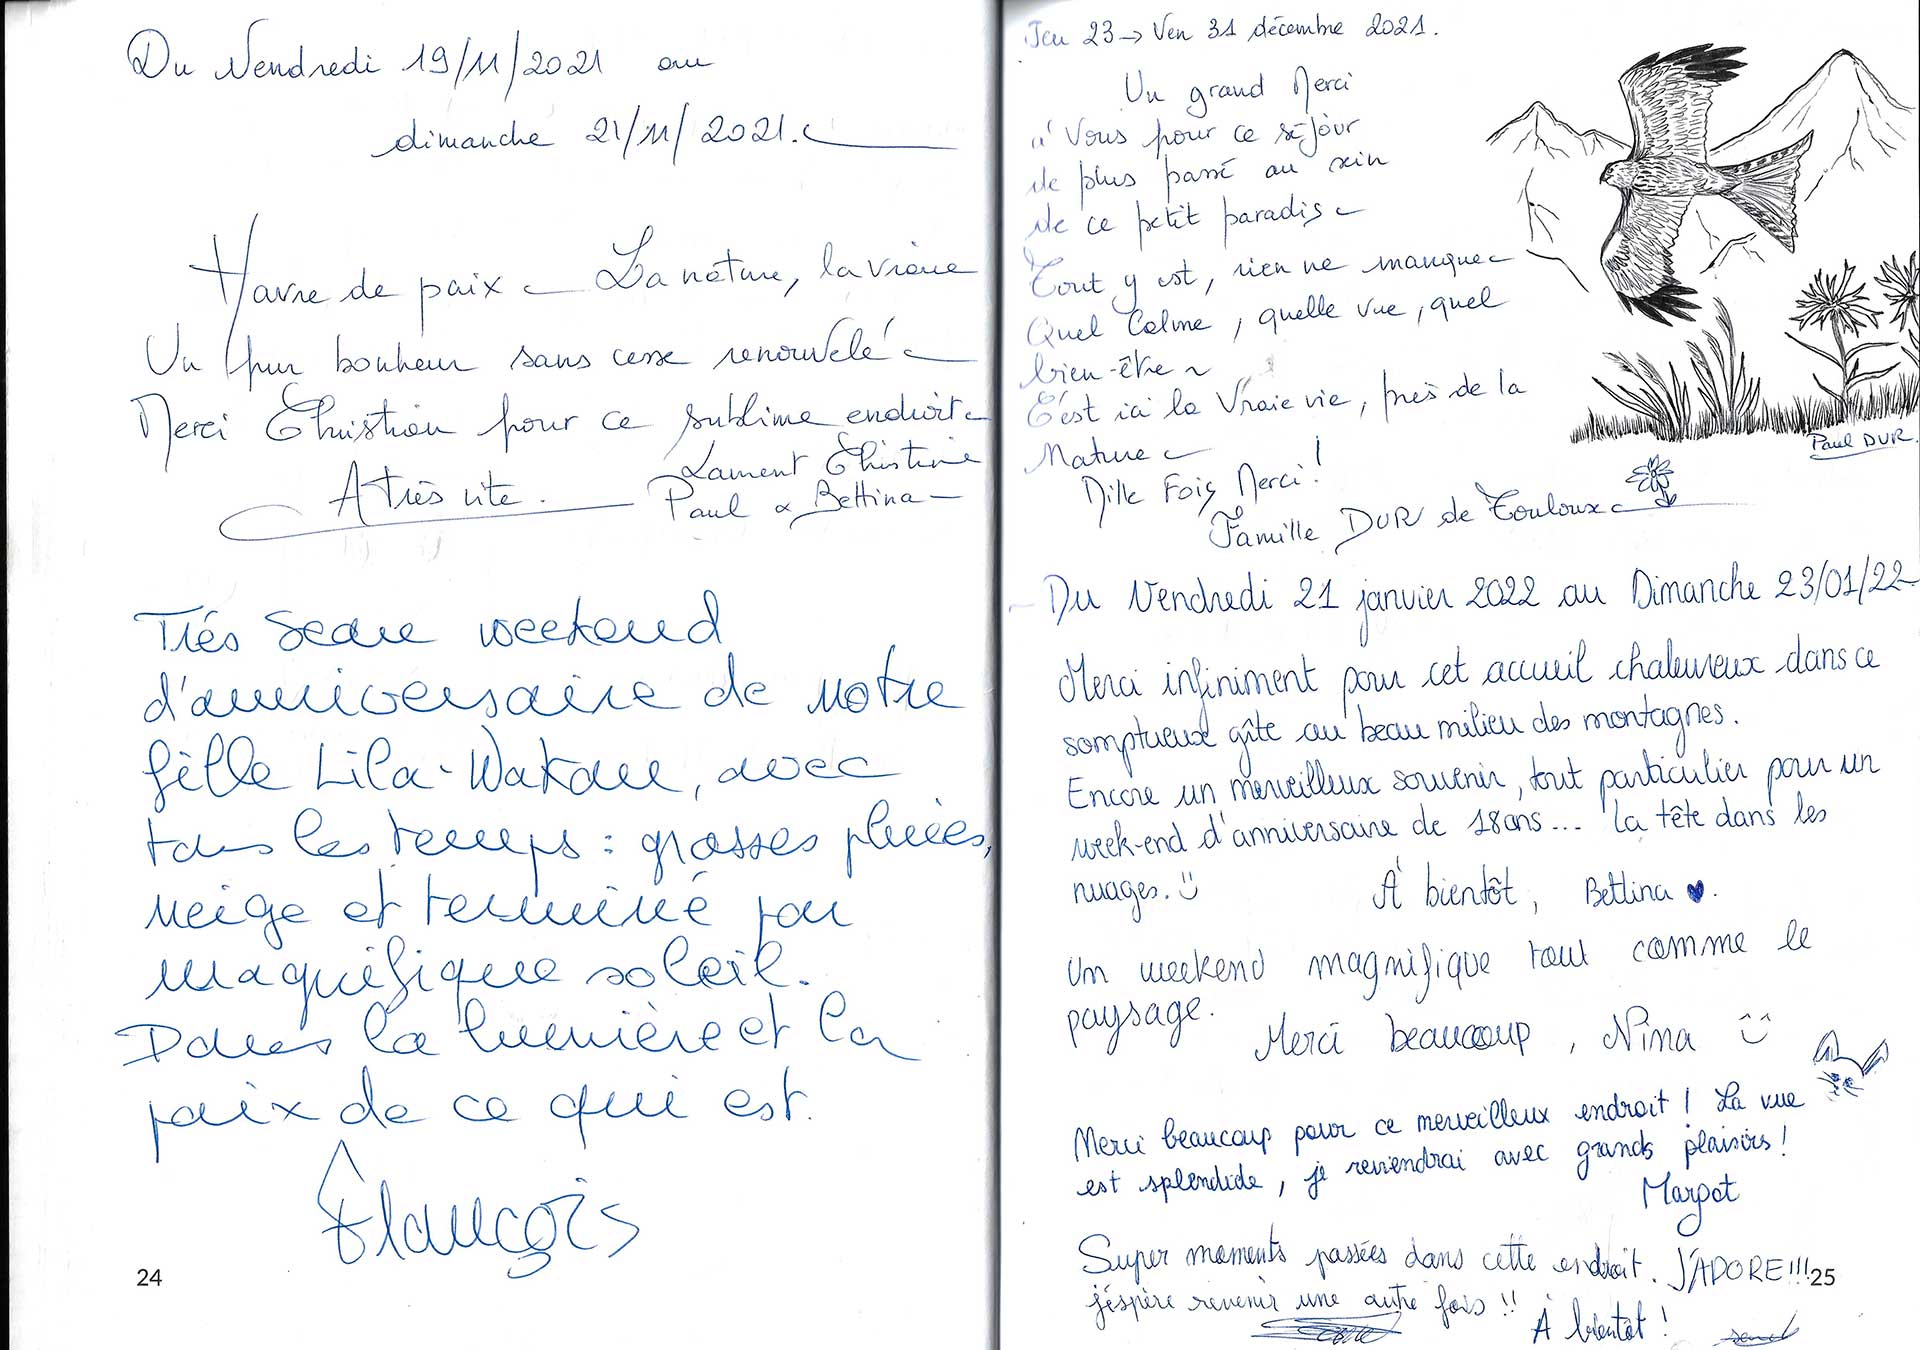 Du Vendredi 19/11/2021 au
dimanche 21/11/2021.
Havre de paix La nature, la vraie
Un pur bonheur sans cesse renouvelé
Merci Christian pour ce sublime endroit
A très vite.
Laurent Christine
Paul & Bettina
Très beau weekend
d'anniversaire de notre
fille Lila-Wakan, avec
tous les temps : grosses pluies,
neige et terminé par
magnifique soleil.
Dans la lumière et la
paix de ce qui est.
François
24
Jeu 23 → Ven 31 décembre 2021.
Un grand Merci
à Vous pour ce séjour
de plus passé au sein
de ce petit paradis
Tout y est, rien ne manque
Quel Calme, quelle vue, quel
bien-être
C'est ici la Vraie vie, près de la
Nature
Mille Fois Merci !
Famille DUR de Touloux
Paul DUR
Du Vendredi 21 janvier 2022 au Dimanche 23/01/22
Merci infiniment pour cet accueil chaleureux dans ce
somptueux gîte au beau milieu des montagnes.
Encore un merveilleux souvenir, tout particulier pour un
week-end d'anniversaire de 18 ans... la tête dans les
nuages.
À bientôt, Bettina ♥.
Un weekend magnifique tout comme le
paysage.
Merci beaucoup, Nina
Merci beaucoup pour ce merveilleux endroit ! La vue
est splendide, je reviendrai avec grands plaisirs !
Margot
Super moments passées dans cette endroit. J'ADORE !!!
j'éspère revenir une autre fois !!
À bientôt !
25